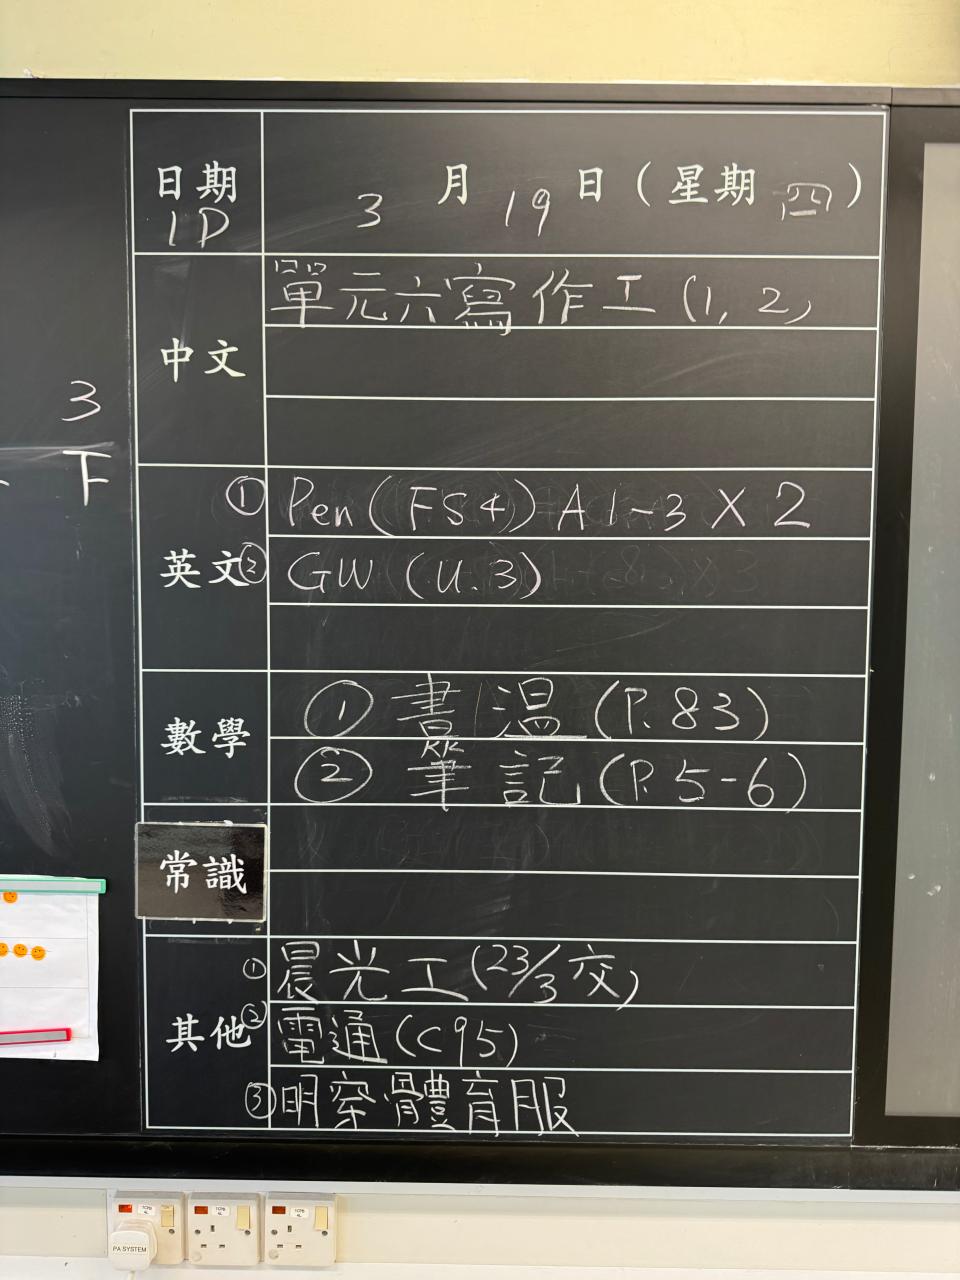 日期 3 月 19 日 (星期 四)
1D
中文
單元六寫作工 (1, 2)
3
下
英文
① Pen (FS4) A 1-3 X 2
② GW (U.3)
數學
① 書 溫 (P. 83)
② 筆 記 (P. 5-6)
常識
其他
① 晨光工 (23/3 交)
② 電通 (C95)
③ 明穿體育服
PA SYSTEM